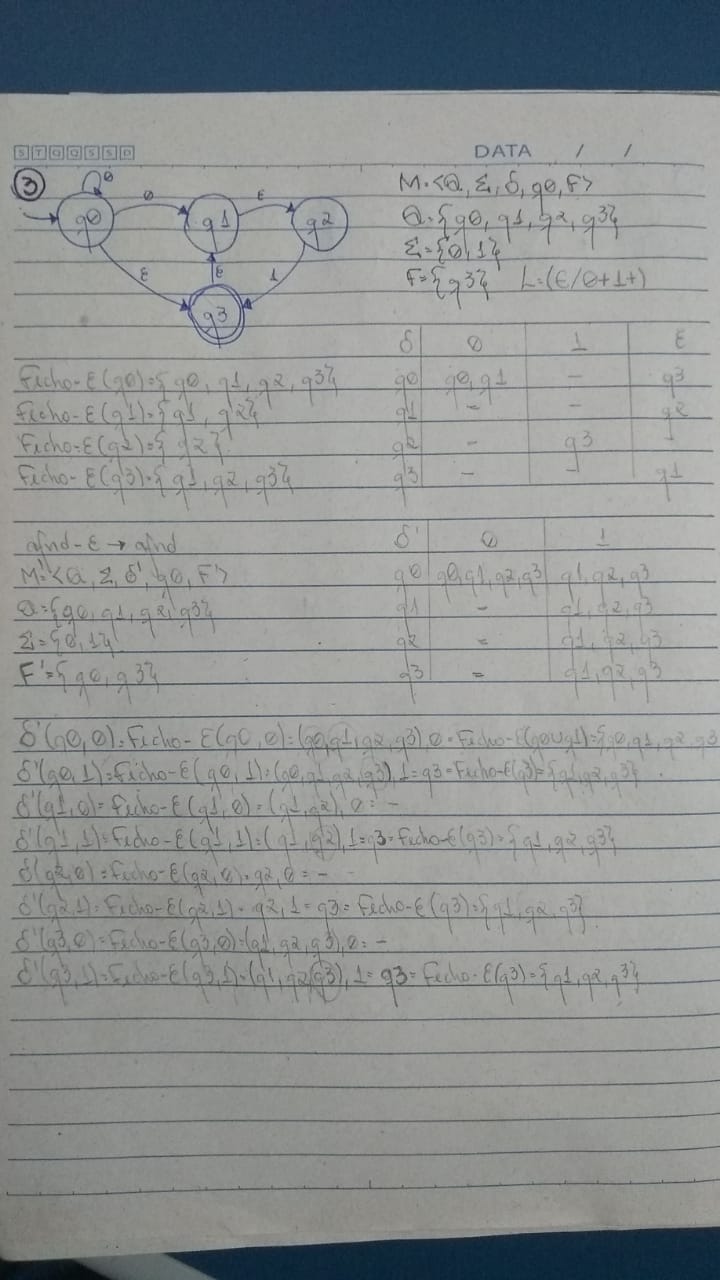 STQQSSD
DATA / /
3
M=<Q, Σ, δ, q0, F>
0
0
ε
q0 q1 q2
Q={q0, q1, q2, q3}
Σ={0,1}
ε ε 1
q3
F={q3} L=(ε/0+1+)
δ 0 1 ε
Fecho-ε(q0)={q0, q1, q2, q3} q0 q0,q1 - q3
Fecho-ε(q1)={q1, q2} q1 - - q2
Fecho-ε(q2)={q2} q2 - q3 -
Fecho-ε(q3)={q1, q2, q3} q3 - - q1
afnd-ε → afnd δ' 0 1
M'=<Q, Σ, δ', q0, F'> q0 q0,q1,q2,q3 q1,q2,q3
Q={q0, q1, q2, q3} q1 - q1,q2,q3
Σ={0,1} q2 - q1,q2,q3
F'={q0, q3} q3 - q1,q2,q3
δ'(q0,0)=Fecho-ε(q0,0)=(q0,q1,q2,q3),0=Fecho-ε(q0∪q1)={q0,q1,q2,q3
δ'(q0,1)=Fecho-ε(q0,1)=(q0,q1,q2,q3),1=q3=Fecho-ε(q3)={q1,q2,q3}.
δ'(q1,0)=Fecho-ε(q1,0)=(q1,q2),0=-
δ'(q1,1)=Fecho-ε(q1,1)=(q1,q2),1=q3=Fecho-ε(q3)={q1,q2,q3}
δ'(q2,0)=Fecho-ε(q2,0)=q2,0=-
δ'(q2,1)=Fecho-ε(q2,1)=q2,1=q3=Fecho-ε(q3)={q1,q2,q3}.
δ'(q3,0)=Fecho-ε(q3,0)=(q1,q2,q3),0=-
δ'(q3,1)=Fecho-ε(q3,1)=(q1,q2,q3),1=q3=Fecho-ε(q3)={q1,q2,q3}